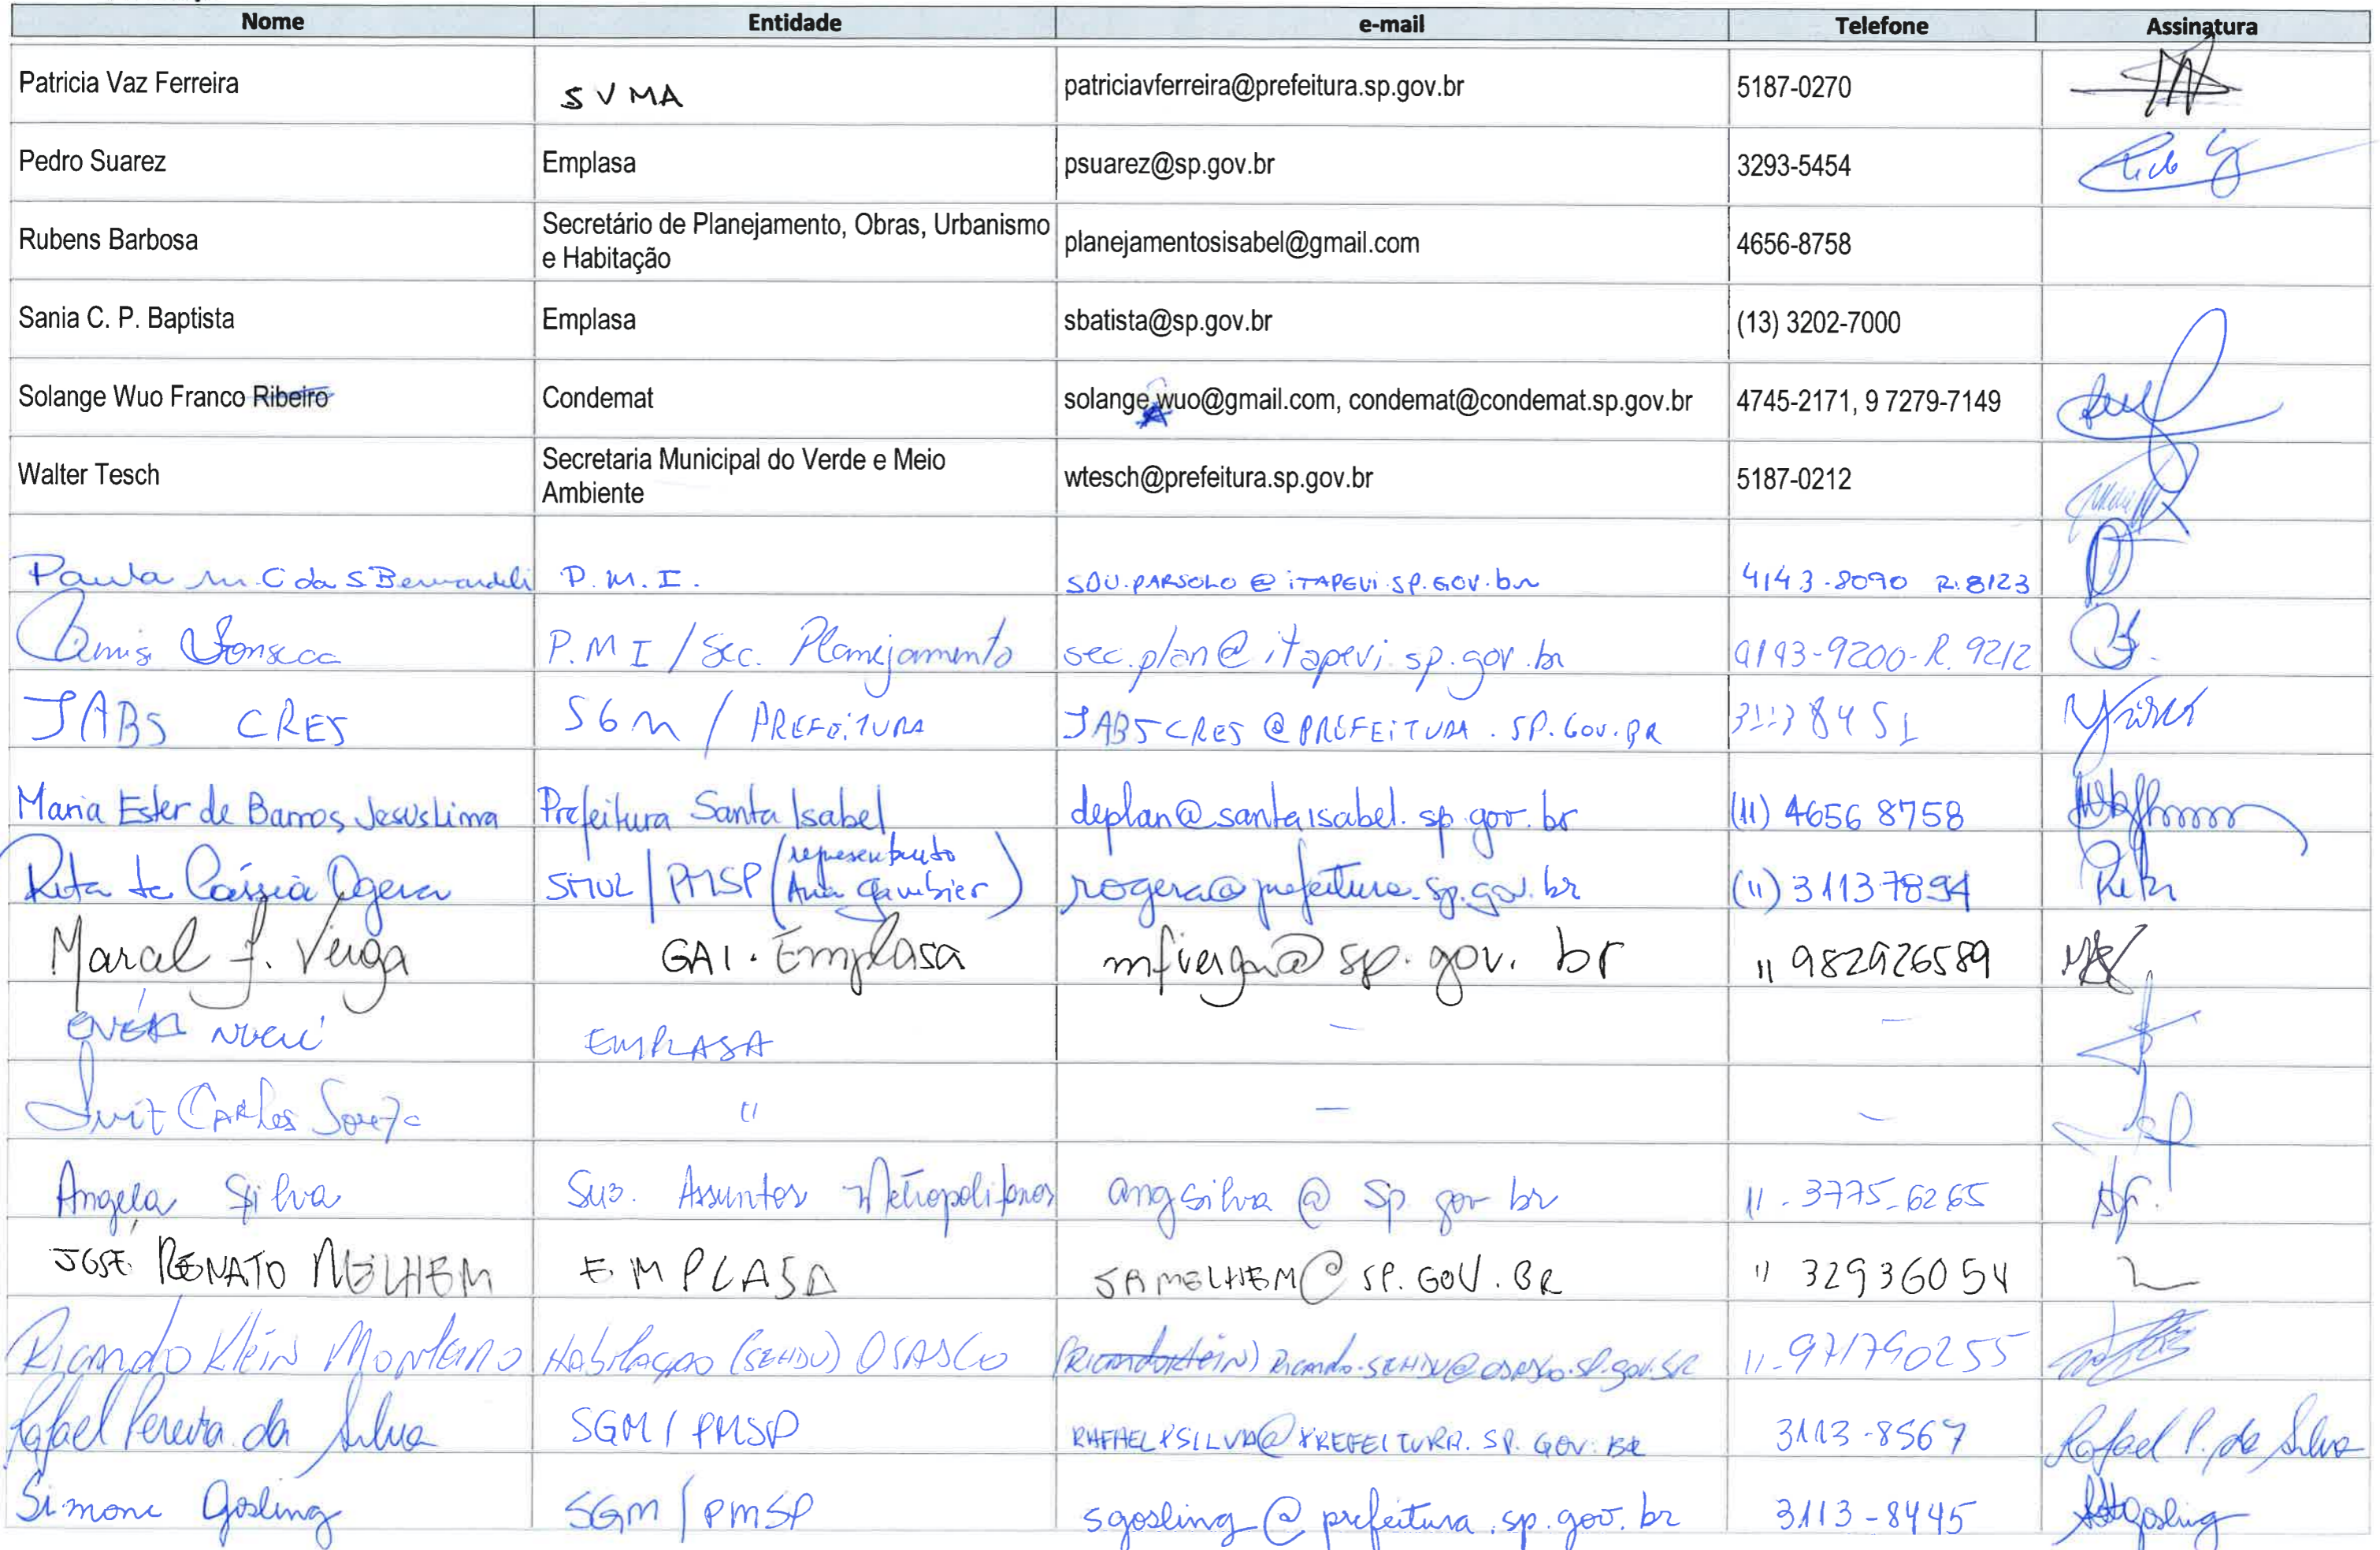 Nome Entidade e-mail Telefone Assinatura
Patricia Vaz Ferreira SVMA patriciavferreira@prefeitura.sp.gov.br 5187-0270
Pedro Suarez Emplasa psuarez@sp.gov.br 3293-5454
Rubens Barbosa Secretário de Planejamento, Obras, Urbanismo
e Habitação planejamentosisabel@gmail.com 4656-8758
Sania C. P. Baptista Emplasa sbatista@sp.gov.br (13) 3202-7000
Solange Wuo Franco Ribeiro Condemat solange.wuo@gmail.com, condemat@condemat.sp.gov.br 4745-2171, 9 7279-7149
Walter Tesch Secretaria Municipal do Verde e Meio
Ambiente wtesch@prefeitura.sp.gov.br 5187-0212
Paula M. C da S Bernardeli P.M.I. SDU.PARSOLO@ITAPEVI.SP.GOV.br 4143-8090 R.8123
Fonseca P.M I / Sec. Planejamento sec.plan@itapevi.sp.gov.br 4143-9200-R.9212
JABS CRES SGM / PREFEITURA JABSCRES@PREFEITURA.SP.GOV.BR 31138451
Maria Ester de Barros Jesus Lima Prefeitura Santa Isabel deplan@santaisabel.sp.gov.br (11) 4656 8758
Rita de Cássia Ogera SMUL / PMSP (representando
Ana Gambier) rogera@prefeitura.sp.gov.br (11) 31137894 Rita
Maral f. Veiga GAI. Emplasa mfveiga@sp.gov.br 11 982926589
EMPLASA - -
Luiz Carlos Souza " - -
Angela Silva Sub. Assuntos Metropolitanos angsilva@sp gov br 11-3775-6265
JOSE RENATO MELHEM EMPLASA JRMELHEM@SP.GOV.BR 11 32936054
Ricardo Klein Monteiro Habitação (SEHDU) OSASCO Ricardo.SEHDU@osasco.sp.gov.br 11-971790255
Rafael Pereira da Silva SGM / PMSP RAFAELPSILVA@PREFEITURA.SP.GOV.BR 3113-8567 Rafael P. da Silva
Simone Gosling SGM / PMSP sgosling@prefeitura.sp.gov.br 3113-8445 Gosling